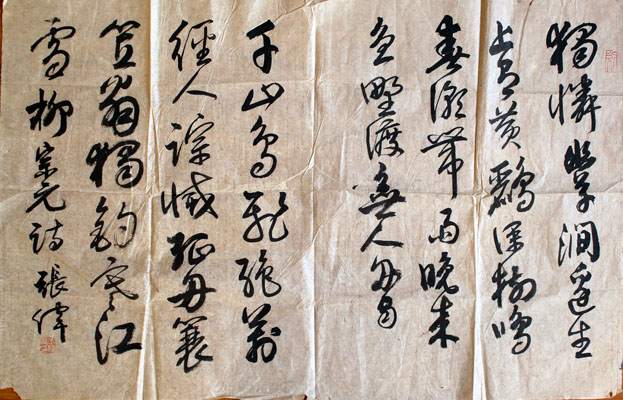 獨憐幽草澗邊生
上有黃鸝深樹鳴
春潮帶雨晚來
急野渡無人舟自
千山鳥飛絕萬
徑人踪滅孤舟蓑
笠翁獨釣寒江
雪柳宗元詩張偉